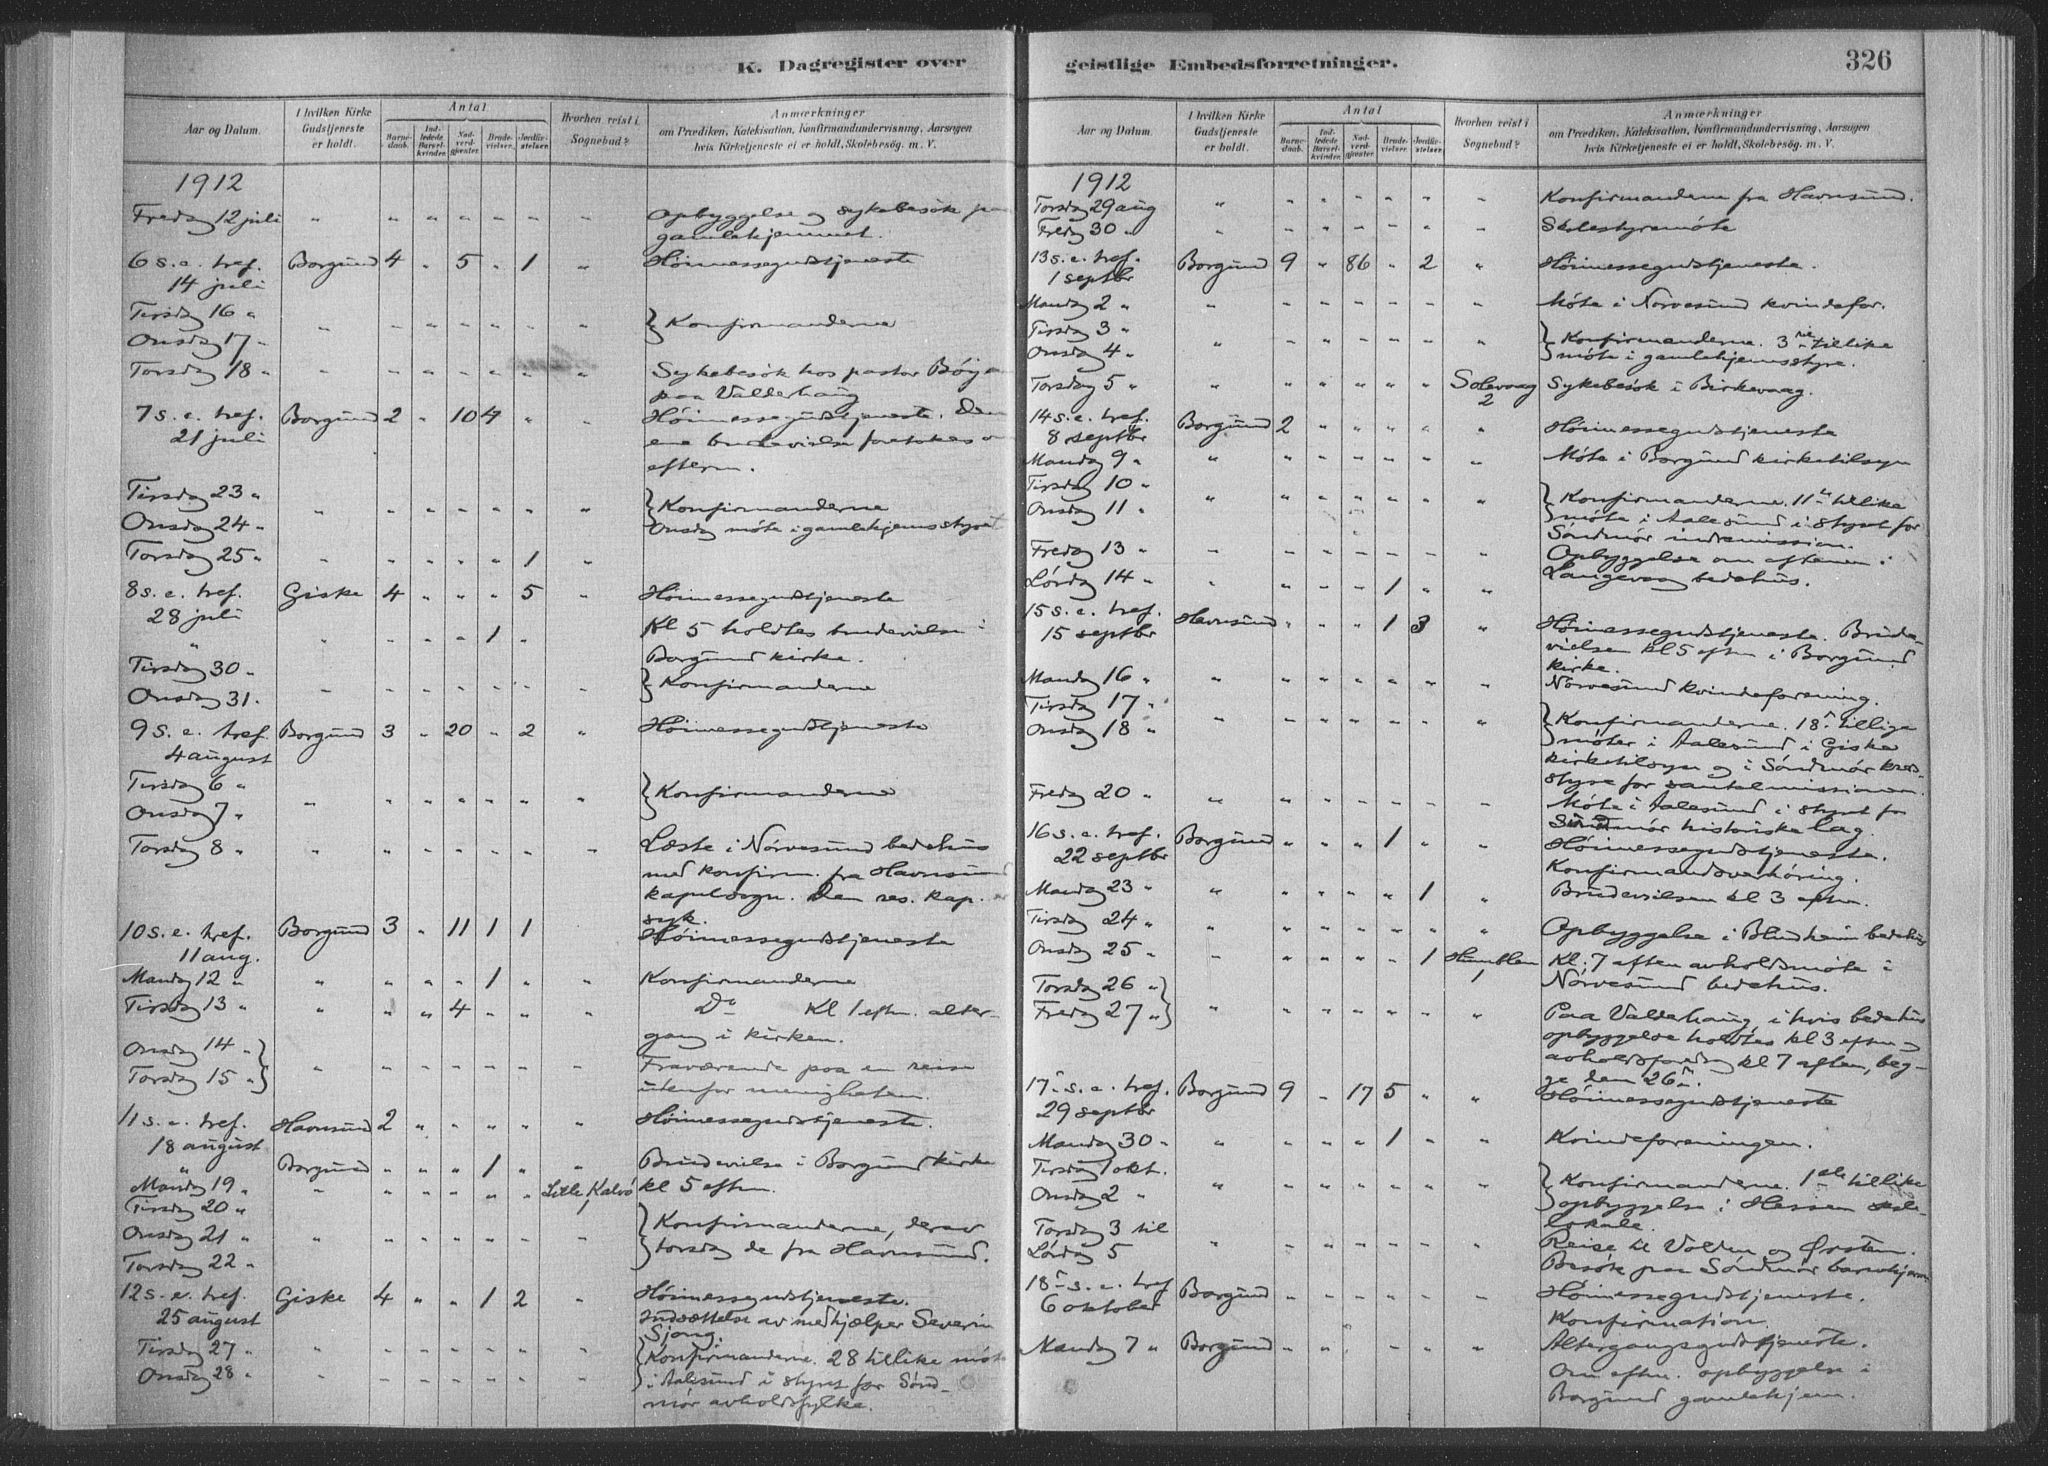 K. Dagregister over
Aar og Datum.
I hvilken Kirke Gudstjeneste er holdt.
Antal
Barnedaab.
Indledede Barselkvinder.
Nadverdgjæster.
Brudevielser.
Jordfæstelser.
Hvorhen reist i Sognebud?
Anmærkninger
om Prædiken, Katekisation, Konfirmandundervisning, Aarsagen
hvis Kirketjeneste ei er holdt, Skolebesøg. m. V.
1912
Fredag 12 juli " " " " " " " Opbyggelse og sykebesøk paa
gamlehjemmet.
6 s. e. tref. Borgund 4 " 5 " 1 " Høimessegudstjeneste
14 juli
Tirsdag 16 "
Onsdag 17 " } Konfirmanderne
Torsdag 18 " Sykebesøk hos pastor
paa Valderhaug
7 s. e. tref. Borgund 2 " 10 4 " " Høimessegudstjeneste. Den
21 juli ene brudevielse foretokes
efterm.
Tirsdag 23 " } Konfirmanderne
Onsdag 24 " Onsdag møte i gamlehjemsstyret
Torsdag 25 " " " " " " 1 "
8 s. e. tref. Giske 4 " " " 5 " Høimessegudstjeneste
28 juli
" " " " " 1 " Kl 5 holdtes brudevielse i
Borgund kirke.
Tirsdag 30 "
Onsdag 31. } Konfirmanderne
9 s. e. tref. Borgund 3 " 20 " 2 " Høimessegudstjeneste
4 august
Tirsdag 6 "
Onsdag 7 " } Konfirmanderne
Torsdag 8 " Læste i Nørvesund bedehus
med konfirm. fra Havnsund
kapelsogn. Den res. kap. er
syk.
10 s. e. tref. Borgund 3 " 11 1 1 Høimessegudstjeneste
11 aug.
Mandag 12 " " " " " 1 " " Konfirmanderne
Tirsdag 13 " " " " 4 " " " Do Kl 1 eftm. alter-
gang i kirken.
Onsdag 14 " Fraværende paa en reise
Torsdag 15 " } utenfor menigheten.
11 s. e. tref. Havnsund 2 " " " " " Høimessegudstjeneste.
18 august
" Borgund " " " 1 " " Brudevielse i Borgund kirke
Mandag 19 " " " " " " " Litle Kalvø 1 kl 5 eftm.
Tirsdag 20 "
Onsdag 21 " } Konfirmanderne, derav
Torsdag 22 " torsdag de fra Havnsund.
12 s. e. tref. Giske 4 " " 1 2 " Høimessegudstjeneste.
25 august Indsættelse av medhjælper Severin
Sjong.
Tirsdag 27 " } Konfirmanderne. 28 tillike møte
Onsdag 28 " i Aalesund i styret for Sønd-
mør avholdsfylke.
geistlige Embedsforretninger.
326
Aar og Datum.
I hvilken Kirke Gudstjeneste er holdt.
Antal
Barnedaab.
Indledede Barselkvinder.
Nadverdgjæster.
Brudevielser.
Jordfæstelser.
Hvorhen reist i Sognebud?
Anmærkninger
om Prædiken, Katekisation, Konfirmandundervisning, Aarsagen
hvis Kirketjeneste ei er holdt, Skolebesøg. m. V.
1912
Torsdag 29 aug " " " " " " " Konfirmanderne fra Havnsund.
Fredag 30 " " " " " " " " Skolestyremøte
13 s. e. tref. Borgund 9 " 86 " 2 " Høimessegudstjeneste.
1 septbr
Mandag 2 " Møte i Nørvesund kvindefor.
Tirsdag 3 " } Konfirmanderne. 3die tillike
Onsdag 4 " møte i gamlehjemsstyre.
Torsdag 5 " " " " " " " Solevaag 2 Sykebesøk i Birkevaag.
14 s. e. tref. Borgund 2 " " " " " Høimessegudstjeneste
8 septbr
Mandag 9 " Møte i Borgund kirketilsyn
Tirsdag 10 " } Konfirmanderne. 11te tillike
Onsdag 11 " møte i Aalesund i styret for
Søndmør indremission.
Fredag 13 " Opbyggelse om aftenen i
Lørdag 14 " " " " " 1 " " Langevaag bedehus.
15 s. e. tref. Havnsund " " " 1 3 " Høimessegudstjeneste. Brude-
15 septbr vielsen kl 5 eftm i Borgund
kirke.
Mandag 16 " Nørvesund kvindeforening.
Tirsdag 17 " } Konfirmanderne. 18de tillige
Onsdag 18 " møter i Aalesund i Giske
kirketilsyn og i Søndmør kreds-
styre for santalmissionen.
Fredag 20 " Møte i Aalesund i styret for
Søndmør historiske lag.
16 s. e. tref. Borgund " " " 1 " " Høimessegudstjeneste.
22 septbr Konfirmandoverhøring.
Mandag 23 " " " " " " 1 " Brudevielsen kl 3 eftm.
Tirsdag 24 " Opbyggelse i Blindheim bedehus
Onsdag 25 " " " " " " 1 Humblen 1 Kl. 7 aften avholdsmøte i
Nørvesund bedehus.
Torsdag 26 "
Fredag 27 " } Paa Valderhaug i hvis bedehus
opbyggelse holdtes kl 3 eftm og
avholdsforedrag kl 7 aften, beg-
ge den 26de.
17de s. e. tref. Borgund 9 " 17 5 " " Høimessegudstjeneste
29 septbr
Mandag 30 " " " " " 1 " " Kvindeforeningen.
Tirsdag 1 okt. } Konfirmanderne. 1ste tillike
Onsdag 2 " opbyggelse i Hessen skole-
lokale.
Torsdag 3 til Reise til Volden og Ørsten.
Lørdag 5 Besøk paa Søndmør barnehjem
18de s. e. tref Borgund " " " " " " Høimessegudstjeneste.
6 oktober Konfirmation.
Mandag 7 " Borgund " " " " " Altergangsgudstjeneste.
Om eftm. opbyggelse i
Borgund gamlehjem.